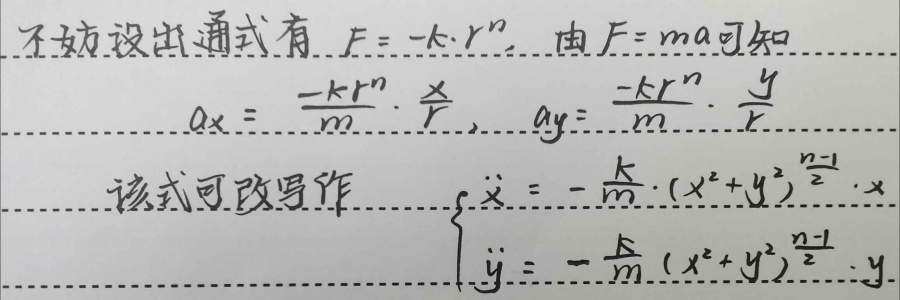 不妨设出通式有 F = -k·rⁿ, 由 F = ma 可知
aₓ = \frac{-krⁿ}{m} · \frac{x}{r}, a_y = \frac{-krⁿ}{m} · \frac{y}{r}
该式可改写作 { ẍ = - \frac{k}{m} · (x² + y²)^{\frac{n-1}{2}} · x
ÿ = - \frac{k}{m} (x² + y²)^{\frac{n-1}{2}} · y